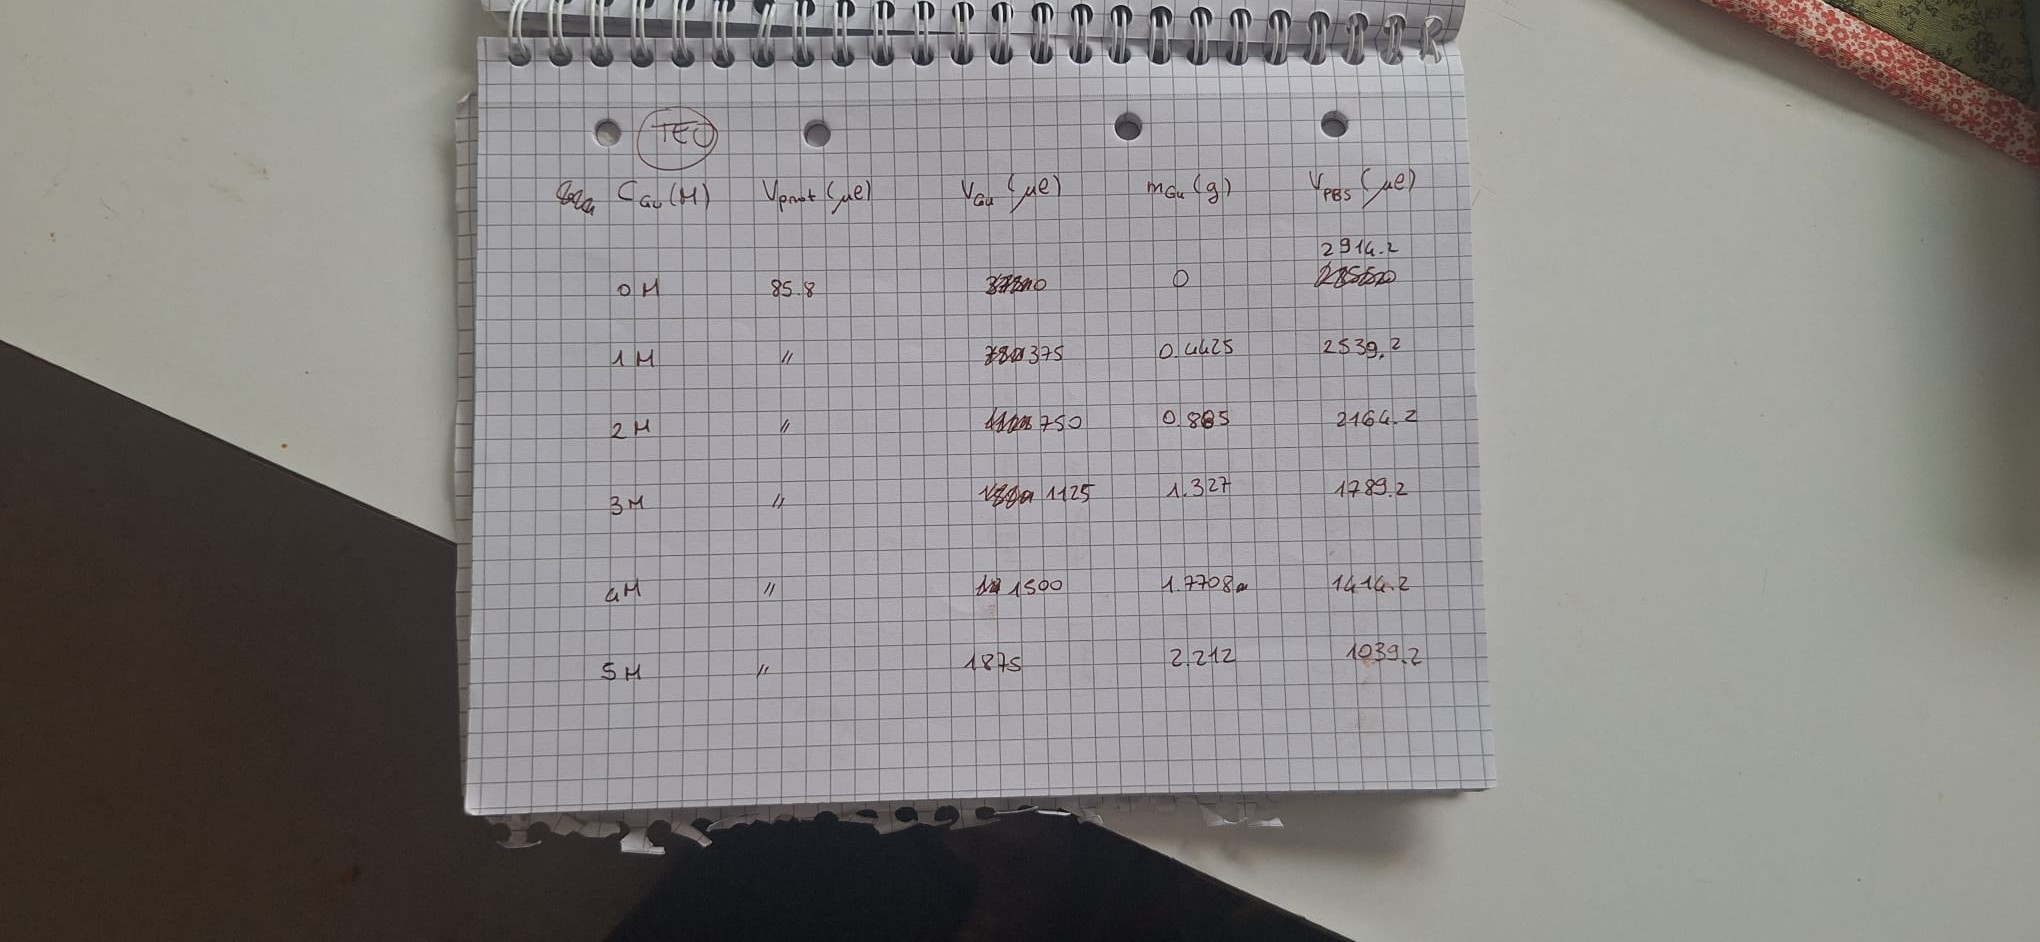 TEO
C Gu (M) Vprot (μl) VGu (μl) mGu (g) VPBS (μl)
2914.2
0 M 85.8 0 0
1 M " 375 0.4425 2539.2
2 M " 750 0.885 2164.2
3 M " 1125 1.327 1789.2
4 M " 1500 1.7708 1414.2
5 M " 1875 2.212 1039.2